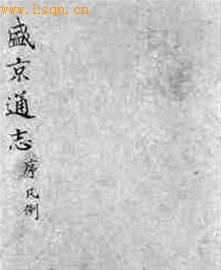 www.lsqn.cn
盛京通志
序凡例